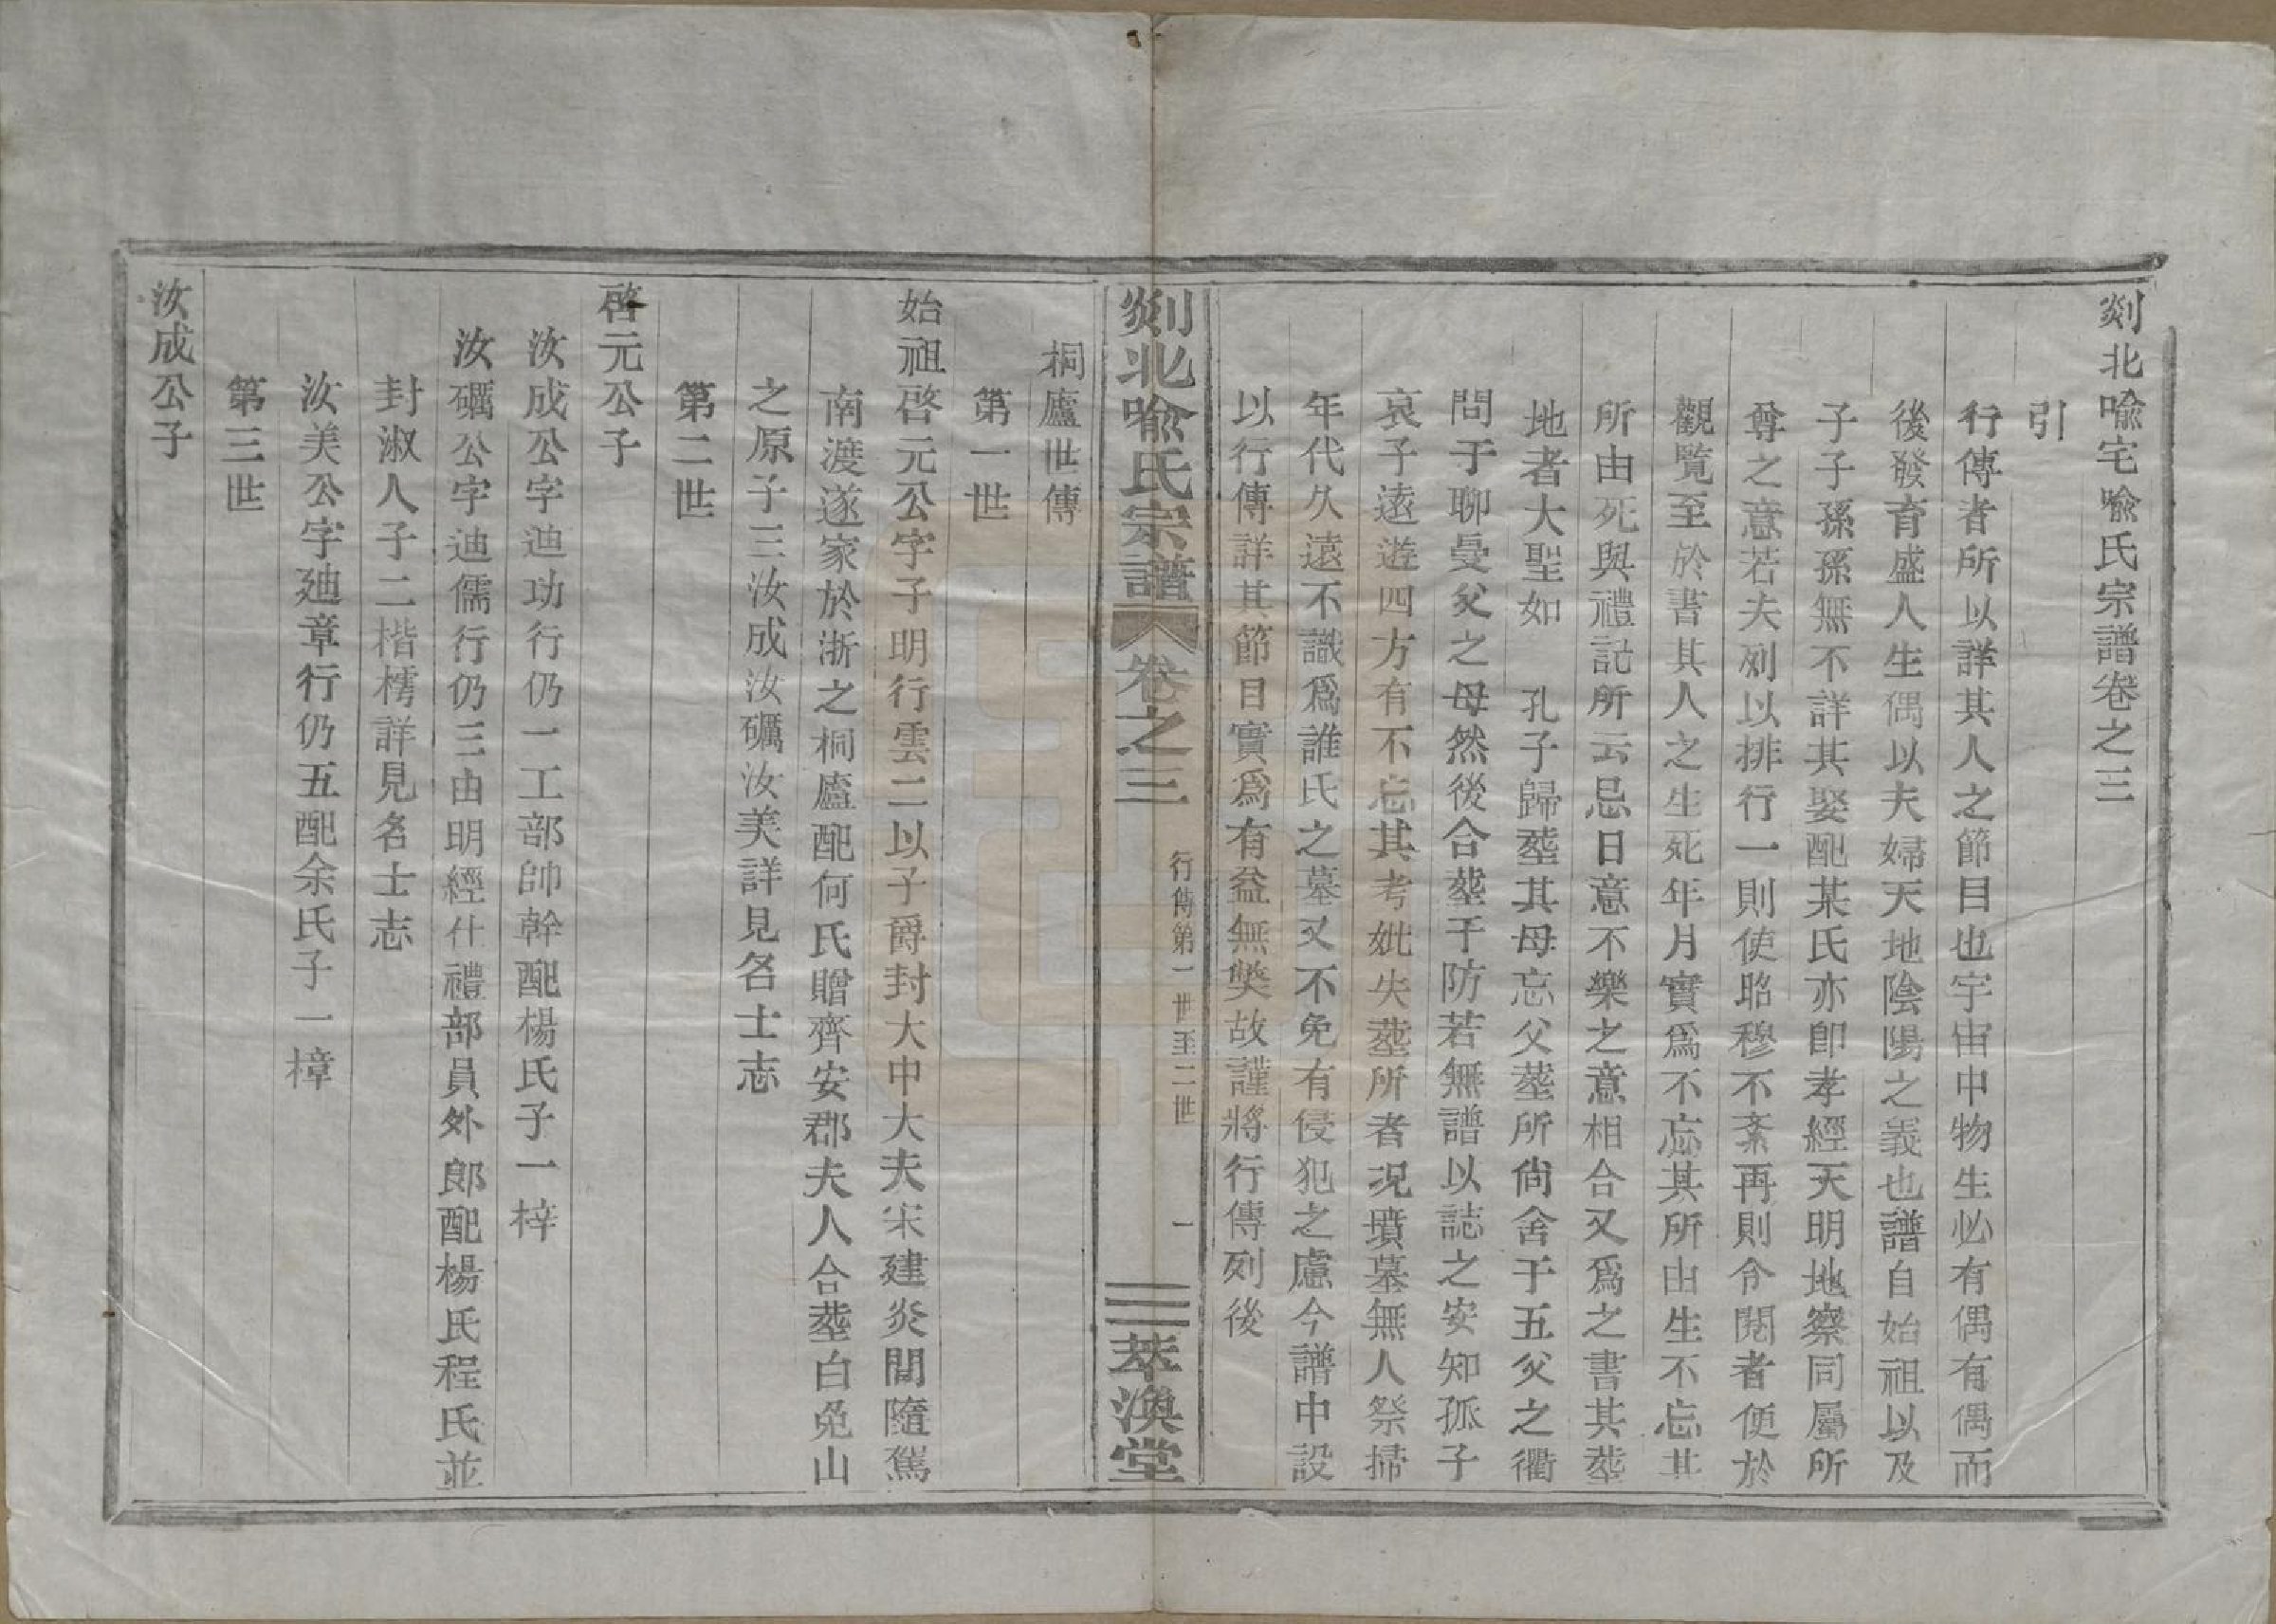 剡北喻宅喻氏宗譜卷之三
引
行傳者所以詳其人之節目也宇宙中物生必有偶有偶而
後發育盛人生偶以夫婦天地陰陽之義也譜自始祖以及
子子孫孫無不詳其娶配某氏亦卽孝經天明地察同屬所
尊之意若夫列以排行一則使昭穆不紊再則令閱者便於
觀覽至於書其人之生死年月實爲不忘其所由生不忘其
所由死與禮記所云忌日意不樂之意相合又爲之書其塟
地者大聖如 孔子歸塟其母忘父塟所尙舍于五父之衢
問于聊曼父之母然後合塟于防若無譜以誌之安知孤子
哀子遠遊四方有不忘其考妣失塟所者况墳墓無人祭掃
年代久遠不識爲誰氏之墓又不免有侵犯之慮今譜中設
以行傳詳其節目實爲有益無獘故謹將行傳列後
剡北喻氏宗譜 卷之三 行傳第一世至二世 一 萃渙堂
桐廬世傳
第一世
始祖啓元公字子明行雲二以子爵封大中大夫宋建炎間隨駕
南渡遂家於浙之桐廬配何氏贈齊安郡夫人合塟白兔山
之原子三汝成汝礪汝美詳見名士志
第二世
啓元公子
汝成公字迪功行仍一工部帥幹配楊氏子一梓
汝礪公字迪儒行仍三由明經仕禮部員外郎配楊氏程氏並
封淑人子二楷樗詳見名士志
汝美公字廸章行仍五配余氏子一樟
第三世
汝成公子